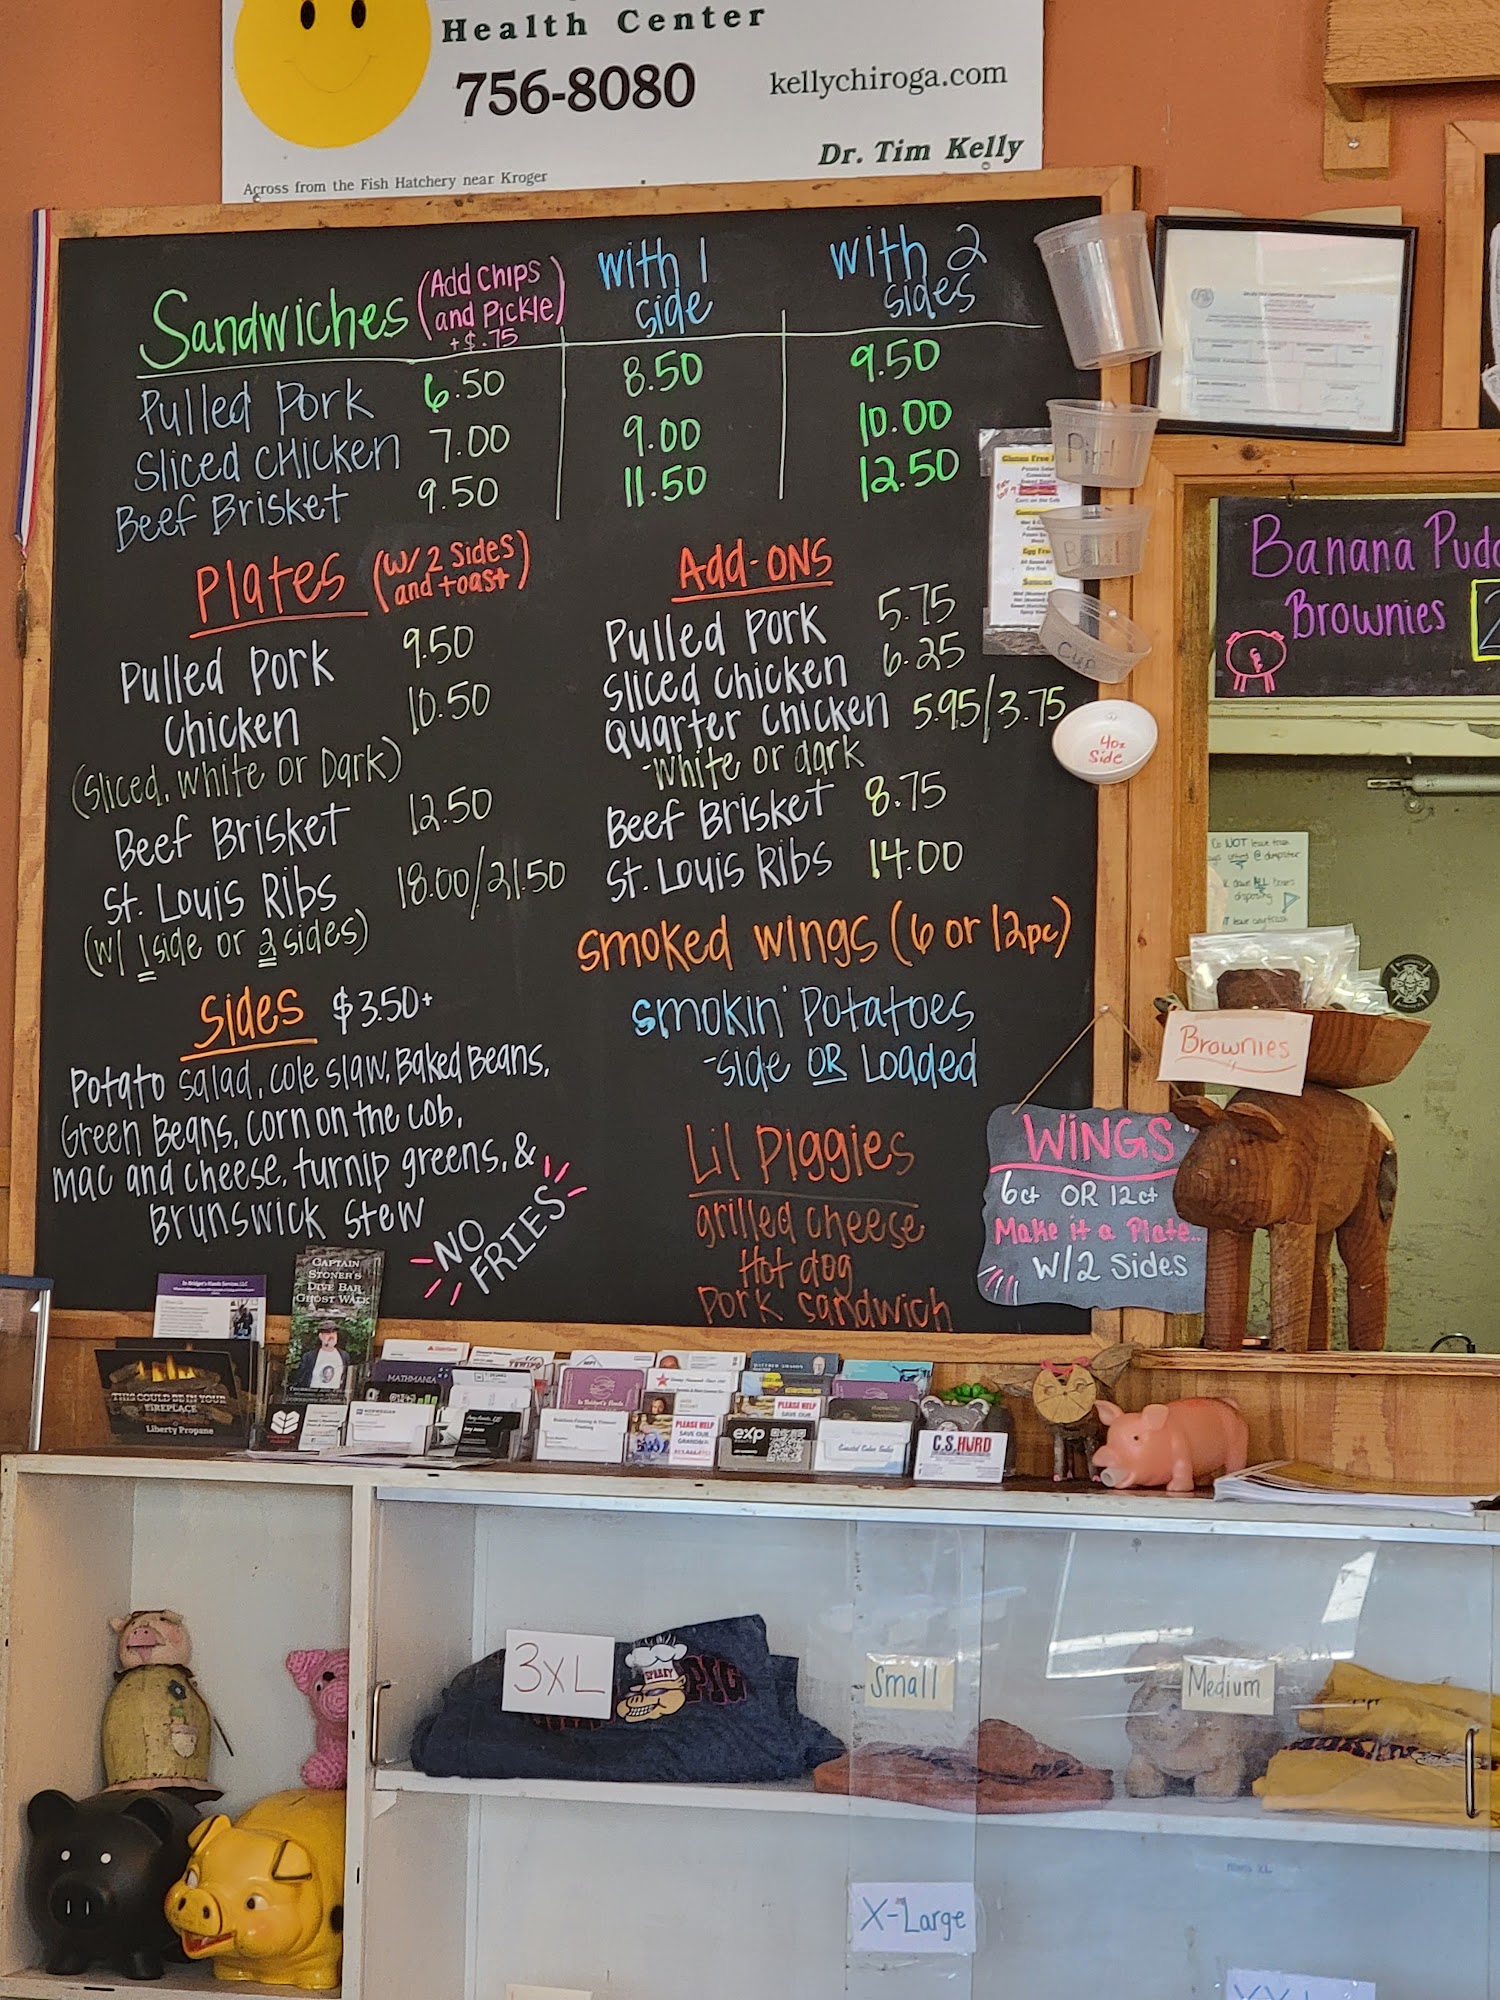 Health Center
756-8080
kellychiroga.com
Dr. Tim Kelly
Across from the Fish Hatchery near Kroger
Sandwiches (Add Chips and Pickle) +$.75
with 1 side
with 2 sides
Pulled Pork 6.50 8.50 9.50
Sliced Chicken 7.00 9.00 10.00
Beef Brisket 9.50 11.50 12.50
Plates (w/ 2 Sides and toast)
Pulled Pork 9.50
Chicken 10.50
(Sliced, White or Dark)
Beef Brisket 12.50
St. Louis Ribs 18.00/21.50
(w/ 1 side or 2 sides)
Sides $3.50+
Potato salad, cole slaw, Baked Beans,
Green Beans, corn on the cob,
mac and cheese, turnip greens, &
Brunswick Stew
NO
FRIES
Add-ons
Pulled Pork 5.75
Sliced Chicken 6.25
Quarter Chicken 5.95/3.75
-White or dark
Beef Brisket 8.75
St. Louis Ribs 14.00
Smoked Wings (6 or 12pc)
Smokin' Potatoes
-side OR Loaded
Lil Piggies
grilled cheese
Hot dog
Pork sandwich
Pint
Bowl
Cup
4oz
Side
Banana Pudd
Brownies
Brownies
WINGS
6ct OR 12ct
Make it a Plate..
w/2 Sides
CAPTAIN
STONER'S
DIVE BAR
GHOST WALK
THIS COULD BE IN YOUR
FIREPLACE
Liberty Propane
MATHMANIA
PLEASE HELP
SAVE OUR
PLEASE HELP
SAVE OUR
exp
C.S. HURD
3XL
PIG
Small
Medium
X-Large